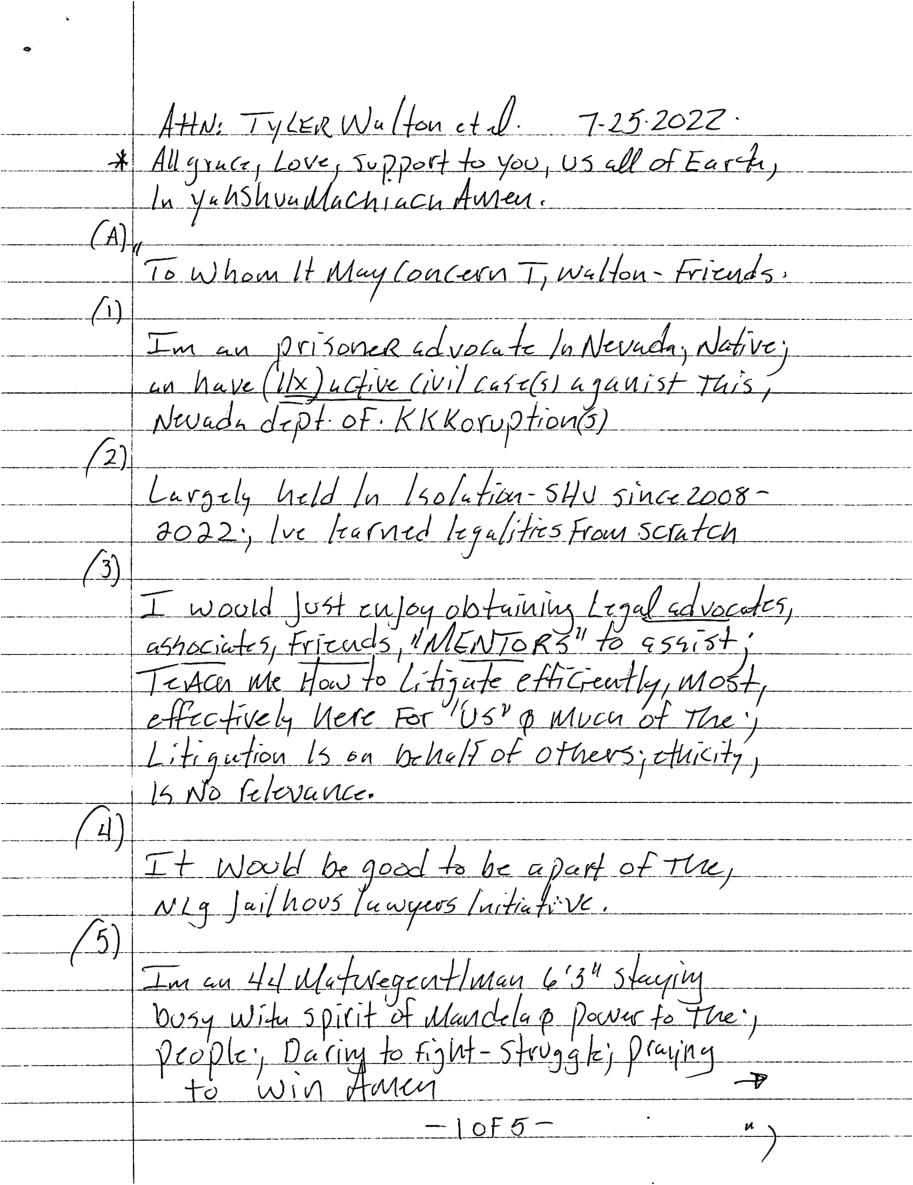 Attn: TYLER Walton et al. 7-25-2022.
* All grace, Love, support to you, us all of Earth,
In YahShuaMachiach Amen.
(A) "
To Whom It May Concern T, Walton - Friends.
(1)
Im an prisoner advocate In Nevada; Native;
an have (11x) active civil case(s) aganist This,
Nevada dept. of. KKKoruption(s)
(2)
Largely held In Isolation - SHU since 2008-
2022;, Ive learned legalities From scratch
(3)
I would Just enjoy obtaining Legal advocates,
associates, Friends, "MENTORS" to assist;
TeACH me How to Litigate efficiently, most,
effectively Here For "US" φ Much of The;,
Litigation Is on behalf of others; ethicity,
Is No relevance.
(4)
It Would be good to be apart of The,
NLg Jailhous lawyers Initiative.
(5)
Im an 44 Mature gentlman 6'3" staying
busy With spirit of Mandela φ power to The;,
people;, Daring to Fight - Struggle; praying
to win Amen →
- 1 OF 5 - ")